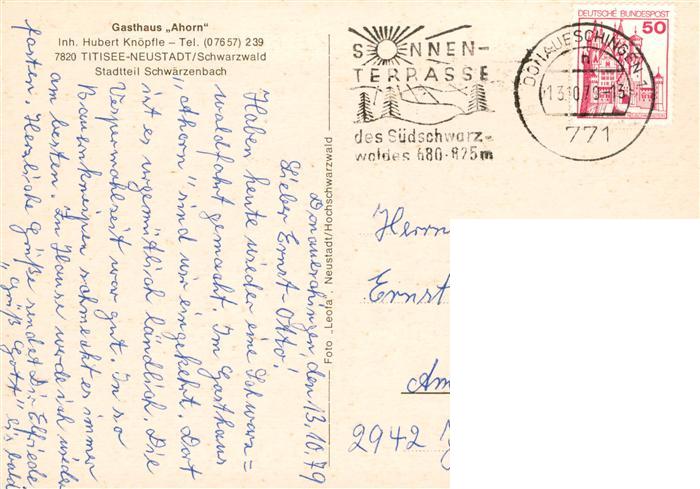 Gasthaus „Ahorn"
Inh. Hubert Knöpfle – Tel. (07657) 239
7820 TITISEE-NEUSTADT/Schwarzwald
Stadtteil Schwärzenbach
Donaueschingen, den 13.10.79
Lieber Ernst-Otto!
Haben heute wieder eine Schwarz=
waldfahrt gemacht. Im Gasthaus
„Ahorn" sind wir eingekehrt. Dort
ist es urgemütlich ländlich. Die
Vespermahlzeit war gut. In so
Bauernkneipen schmeckt es immer
am besten. Zu Hause werde ich wieder
fasten. Herzliche Grüße sendet Dir Elfriede
„Grüß Gott" bis bald
Foto „Leofa", Neustadt/Hochschwarzwald
SONNEN-
TERRASSE
des Südschwarz-
waldes 680-825m
DONAUESCHINGEN 1
h
13.10.79-13
771
DEUTSCHE BUNDESPOST
50
Herrn
Ernst
Am
2942